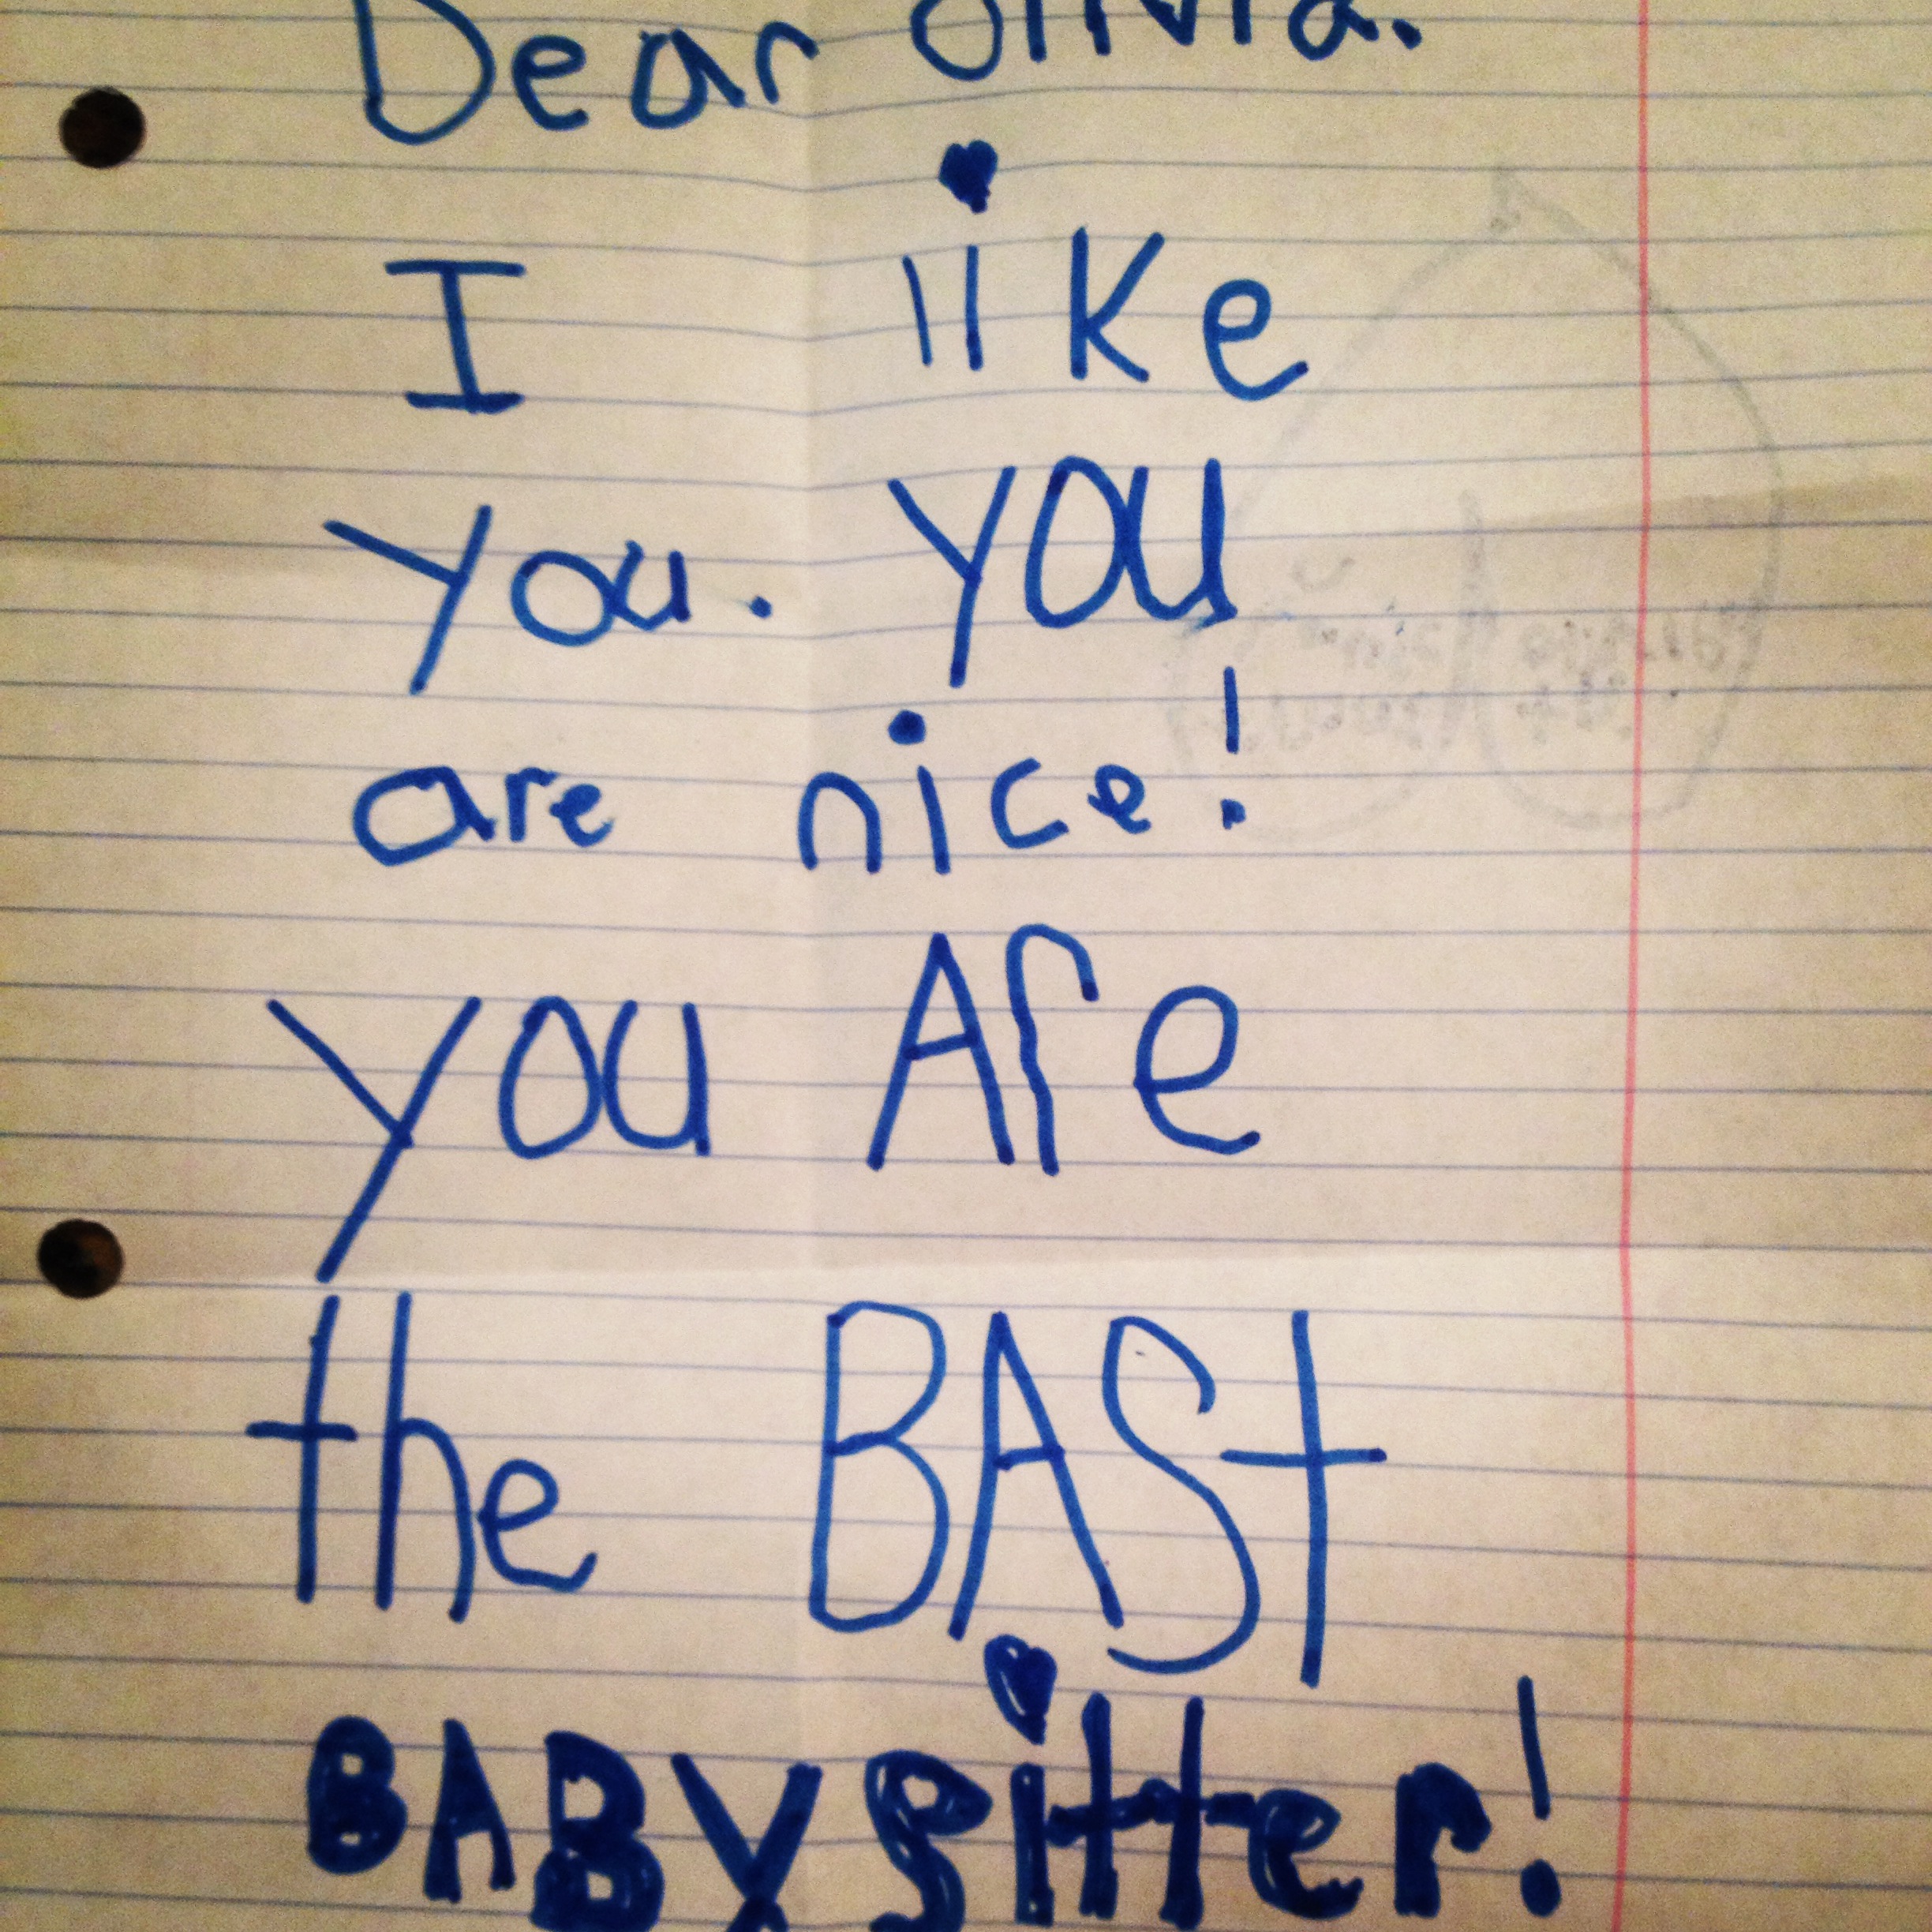 Dear Olivia.
I like
you. you
are nice!
you Are
the BASt
BABYSitter!